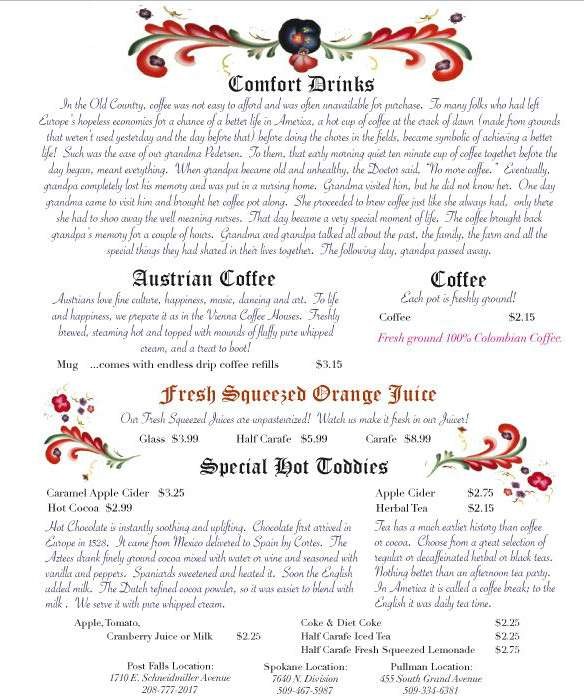 Comfort Drinks
In the Old Country, coffee was not easy to afford and was often unavailable for purchase. To many folks who had left
Europe's hopeless economics for a chance of a better life in America, a hot cup of coffee at the crack of dawn (made from grounds
that weren't used yesterday and the day before that) before doing the chores in the fields, became symbolic of achieving a better
life! Such was the case of our grandma Pedersen. To them, that early morning quiet ten minute cup of coffee together before the
day began, meant everything. When grandpa became old and unhealthy, the Doctor said, "No more coffee." Eventually,
grandpa completely lost his memory and was put in a nursing home. Grandma visited him, but he did not know her. One day
grandma came to visit him and brought her coffee pot along. She proceeded to brew coffee just like she always had, only there
she had to shoo away the well meaning nurses. That day became a very special moment of life. The coffee brought back
grandpa's memory for a couple of hours. Grandma and grandpa talked all about the past, the family, the farm and all the
special things they had shared in their lives together. The following day, grandpa passed away.
Austrian Coffee
Austrians love fine culture, happiness, music, dancing and art. To life
and happiness, we prepare it as in the Vienna Coffee Houses. Freshly
brewed, steaming hot and topped with mounds of fluffy pure whipped
cream, and a treat to boot!
Mug ...comes with endless drip coffee refills $3.15
Coffee
Each pot is freshly ground!
Coffee $2.15
Fresh ground 100% Colombian Coffee.
Fresh Squeezed Orange Juice
Our Fresh Squeezed Juices are unpasteurized! Watch us make it fresh in our Juicer!
Glass $3.99 Half Carafe $5.99 Carafe $8.99
Special Hot Toddies
Caramel Apple Cider $3.25
Hot Cocoa $2.99
Hot Chocolate is instantly soothing and uplifting. Chocolate first arrived in
Europe in 1528. It came from Mexico delivered to Spain by Cortes. The
Aztecs drank finely ground cocoa mixed with water or wine and seasoned with
vanilla and peppers. Spaniards sweetened and heated it. Soon the English
added milk. The Dutch refined cocoa powder, so it was easier to blend with
milk . We serve it with pure whipped cream.
Apple Cider $2.75
Herbal Tea $2.15
Tea has a much earlier history than coffee
or cocoa. Choose from a great selection of
regular or decaffeinated herbal or black teas.
Nothing better than an afternoon tea party.
In America it is called a coffee break; to the
English it was daily tea time.
Apple, Tomato,
Cranberry Juice or Milk $2.25
Coke & Diet Coke $2.25
Half Carafe Iced Tea $2.25
Half Carafe Fresh Squeezed Lemonade $2.75
Post Falls Location:
1710 E. Schneidmiller Avenue
208-777-2017
Spokane Location:
7640 N. Division
509-467-5987
Pullman Location:
455 South Grand Avenue
509-334-6381